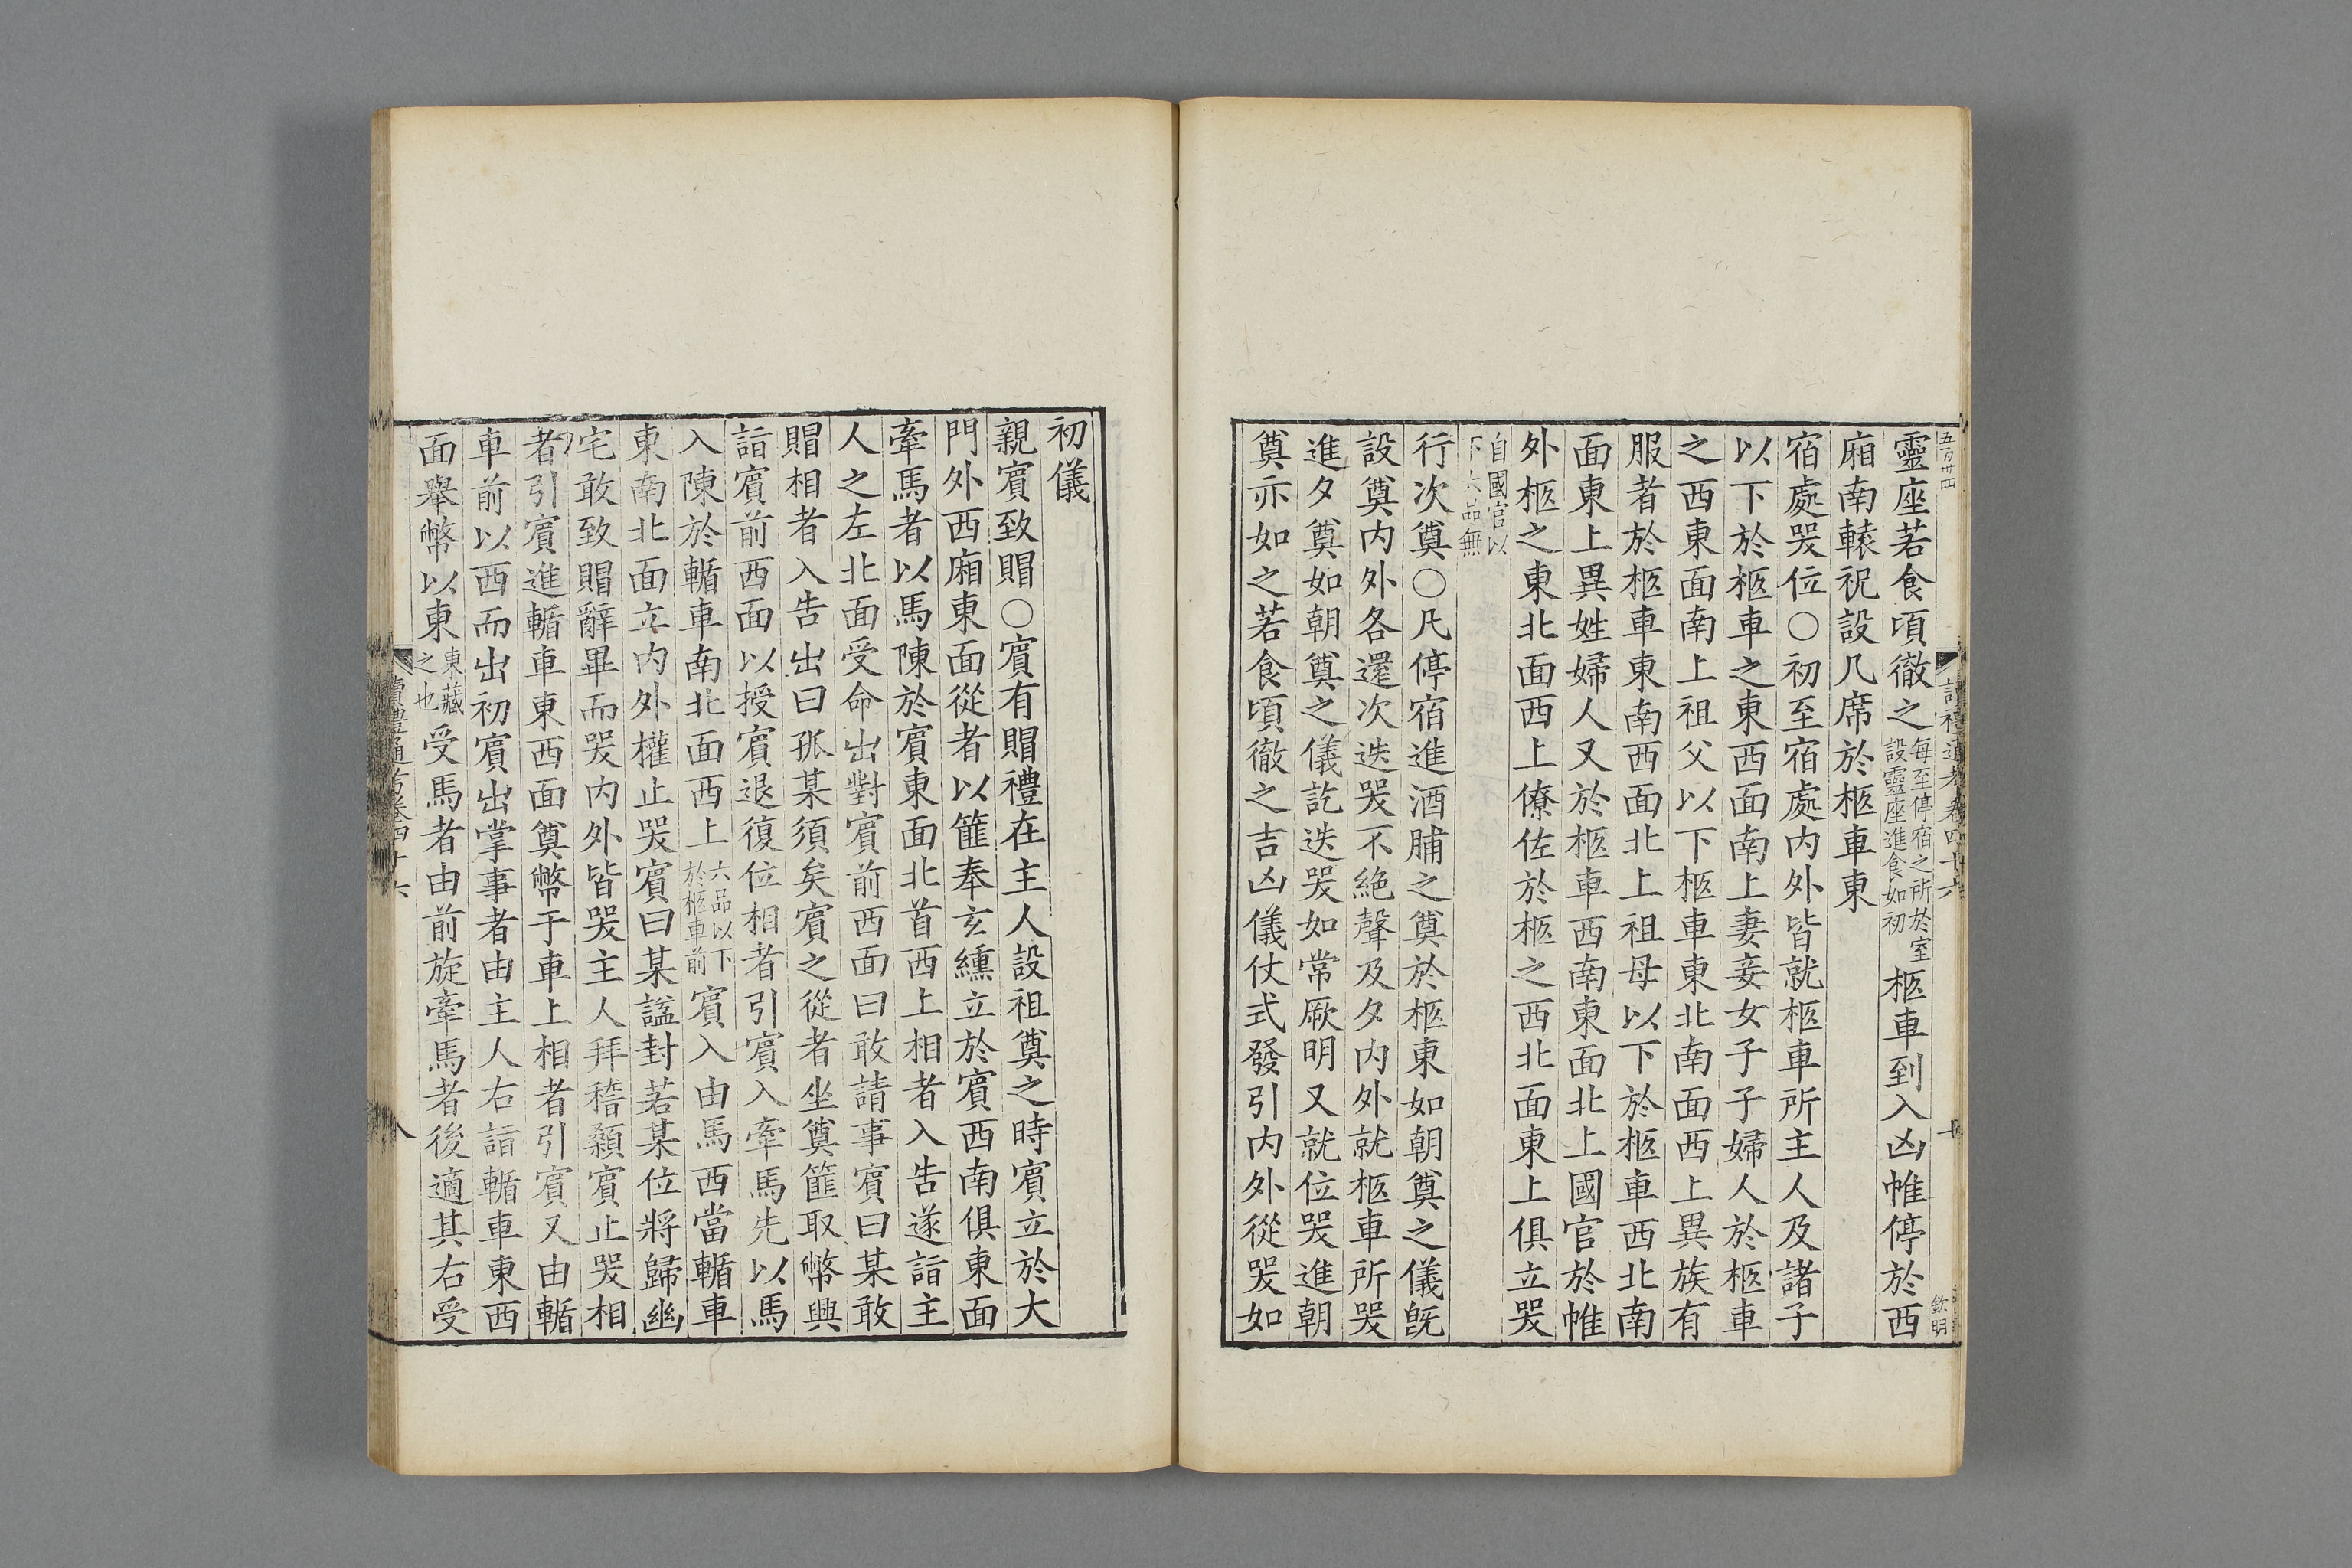 五百卅四
讀禮通考卷四十六
靈座若食頃徹之每至停宿之所於室設靈座進食如初柩車到入凶帷停於西
廂南轅祝設几席於柩車東
宿處哭位○初至宿處內外皆就柩車所主人及諸子
以下於柩車之東西面南上妻妾女子子婦人於柩車
之西東面南上祖父以下柩車東北南面西上異族有
服者於柩車東南西面北上祖母以下於柩車西北南
面東上異姓婦人又於柩車西南東面北上國官於帷
外柩之東北面西上僚佐於柩之西北面東上俱立哭
自國官以下六品無
行次奠○凡停宿進酒脯之奠於柩東如朝奠之儀旣
設奠內外各還次迭哭不絶聲及夕內外就柩車所哭
進夕奠如朝奠之儀訖迭哭如常厥明又就位哭進朝
奠亦如之若食頃徹之吉凶儀仗式發引內外從哭如
初儀
親賓致賵○賓有賵禮在主人設祖奠之時賓立於大
門外西廂東面從者以篚奉玄纁立於賓西南俱東面
牽馬者以馬陳於賓東南北首西上相者入告遂詣主
人之左北面受命出對賓前西面曰敢請事賓曰某敢
賵相者入告出曰孤某須矣賓之從者坐奠篚取幣興
詣賓前西面以授賓退復位相者引賓入牽馬先以馬
入陳於輴車南北面西上六品以下於柩車前賓入由馬西當輴車
東南北面立內外權止哭賓曰某諡封若某位將歸幽
宅敢致賵辭畢而哭內外皆哭主人拜稽顙賓止哭相
者引賓進輴車東西面奠幣于車上相者引賓又由輴
車前以西而出初賓出掌事者由主人右詣輴車東西
面舉幣以東東藏之也受馬者由前旋牽馬者後適其右受
讀禮通考卷四十六